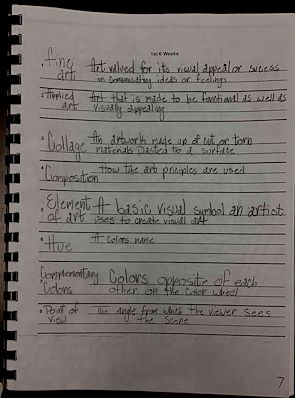 1st 6 Weeks
Fine art Art valued for its visual appeal or sucess
in communicating ideas or feelings
Applied art Art that is made to be functional as well as
visually appealing
Collage An artwork made up of cut or torn
materials pasted to a surface
Composition How the art principles are used
Element of art A basic visual symbol an artist
uses to create visual art
Hue A colors name
Complementary Colors Colors opposite of each
other on the color wheel
Point of view The angle from which the viewer sees
the scene
7